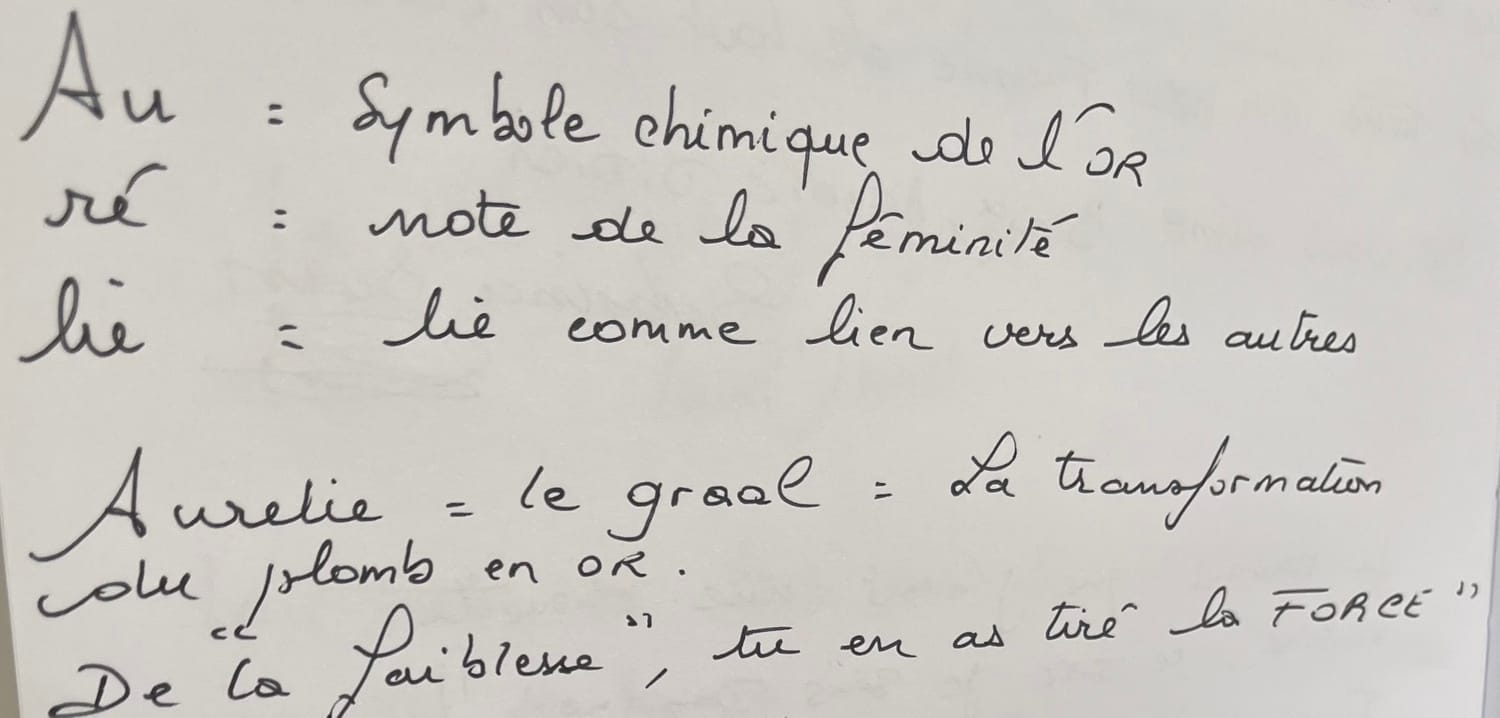 Au = Symbole chimique de l'OR
ré = note de la féminité
lié = lié comme lien vers les autres
Aurelie = le graal = La transformation
du plomb en OR.
De la "faiblesse", tu en as tiré la FORCE"